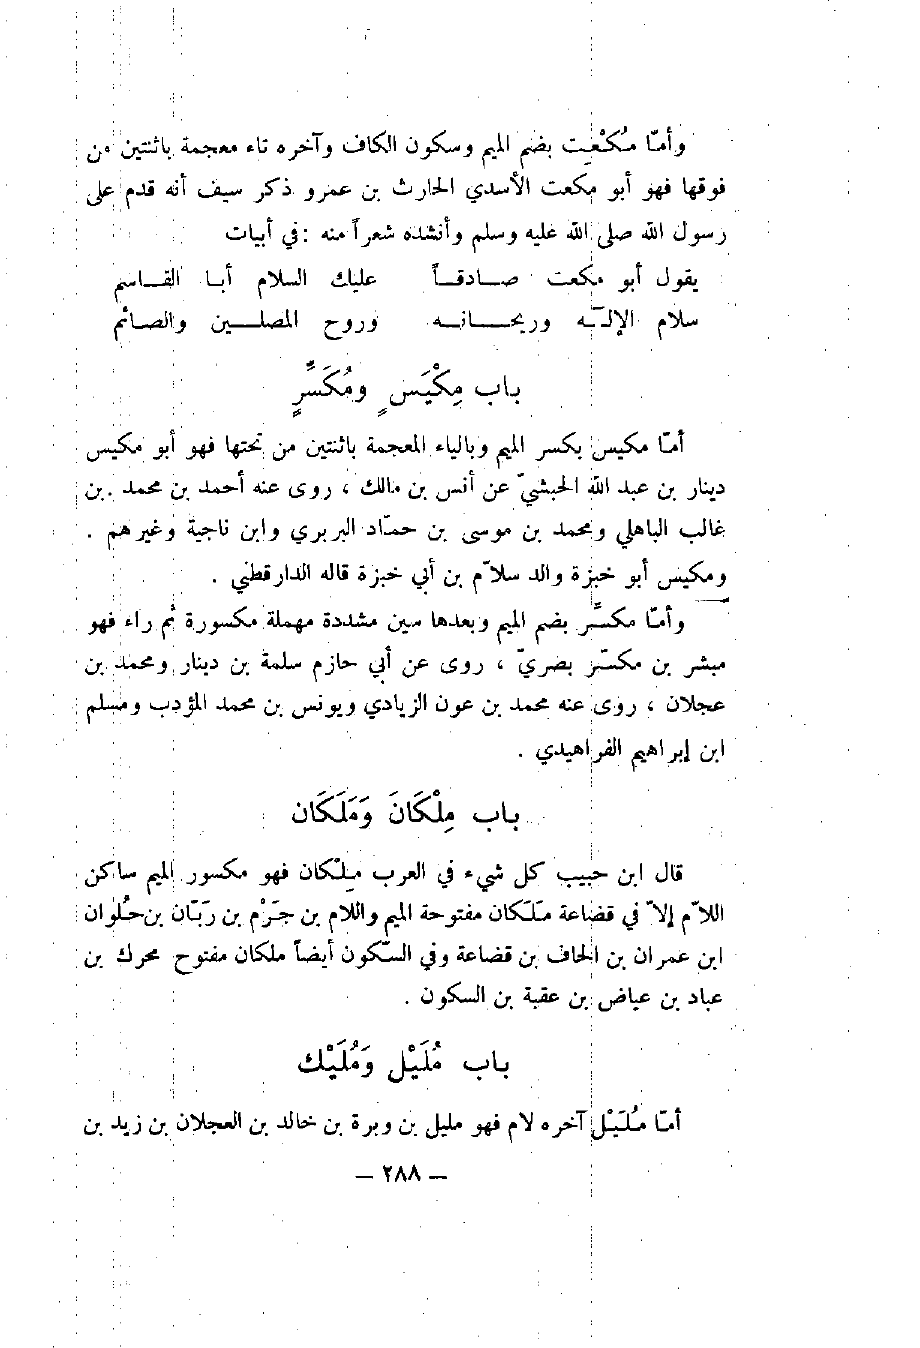 وأمّا مُكْعِت بضم الميم وسكون الكاف وآخره تاء معجمة باثنتين من
فوقها فهو أبو مكعت الأسدي الحارث بن عمرو ذكر سيف أنه قدم على
رسول الله صلى الله عليه وسلم وأنشده شعراً منه : في أبيات
يقول أبو مكعت صـادقـاً عليك السلام أبـا القـاسم
سلام الإلـٓـه وريحـانـه وروح المصلـين والصـائم
باب مِكْيَسٍ ومُكَسَّرٍ
أمّا مكيس بكسر الميم وبالياء المعجمة باثنتين من تحتها فهو أبو مكيس
دينار بن عبد الله الحبشيّ عن أنس بن مالك ، روى عنه أحمد بن محمد بن
غالب الباهلي ومحمد بن موسى بن حمّاد البربري وابن ناجية وغيرهم .
ومكيس أبو خبزة والد سلاّم بن أبي خبزة قاله الدارقطني .
وأمّا مكسَّر بضم الميم وبعدها سين مشددة مهملة مكسورة ثم راء فهو
مبشر بن مكسّر بصريّ ، روى عن أبي حازم سلمة بن دينار ومحمد بن
عجلان ، روى عنه محمد بن عون الزيادي ويونس بن محمد المؤدب ومسلم
ابن إبراهيم الفراهيدي .
باب مِلْكَانَ وَمَلَكَان
قال ابن حبيب كل شيء في العرب مِلْكان فهو مكسور الميم ساكن
اللاّم إلاّ في قضاعة مَلَكان مفتوحة الميم واللام بن جَرْم بن رَبّان بن حُلوان
ابن عمران بن الحاف بن قضاعة وفي السّكون أيضاً ملكان مفتوح محرك بن
عباد بن عياض بن عقبة بن السكون .
باب مُلَيْل وَمُلَيْك
أمّا مُلَيْل آخره لام فهو مليل بن وبرة بن خالد بن العجلان بن زيد بن
— ٢٨٨ —